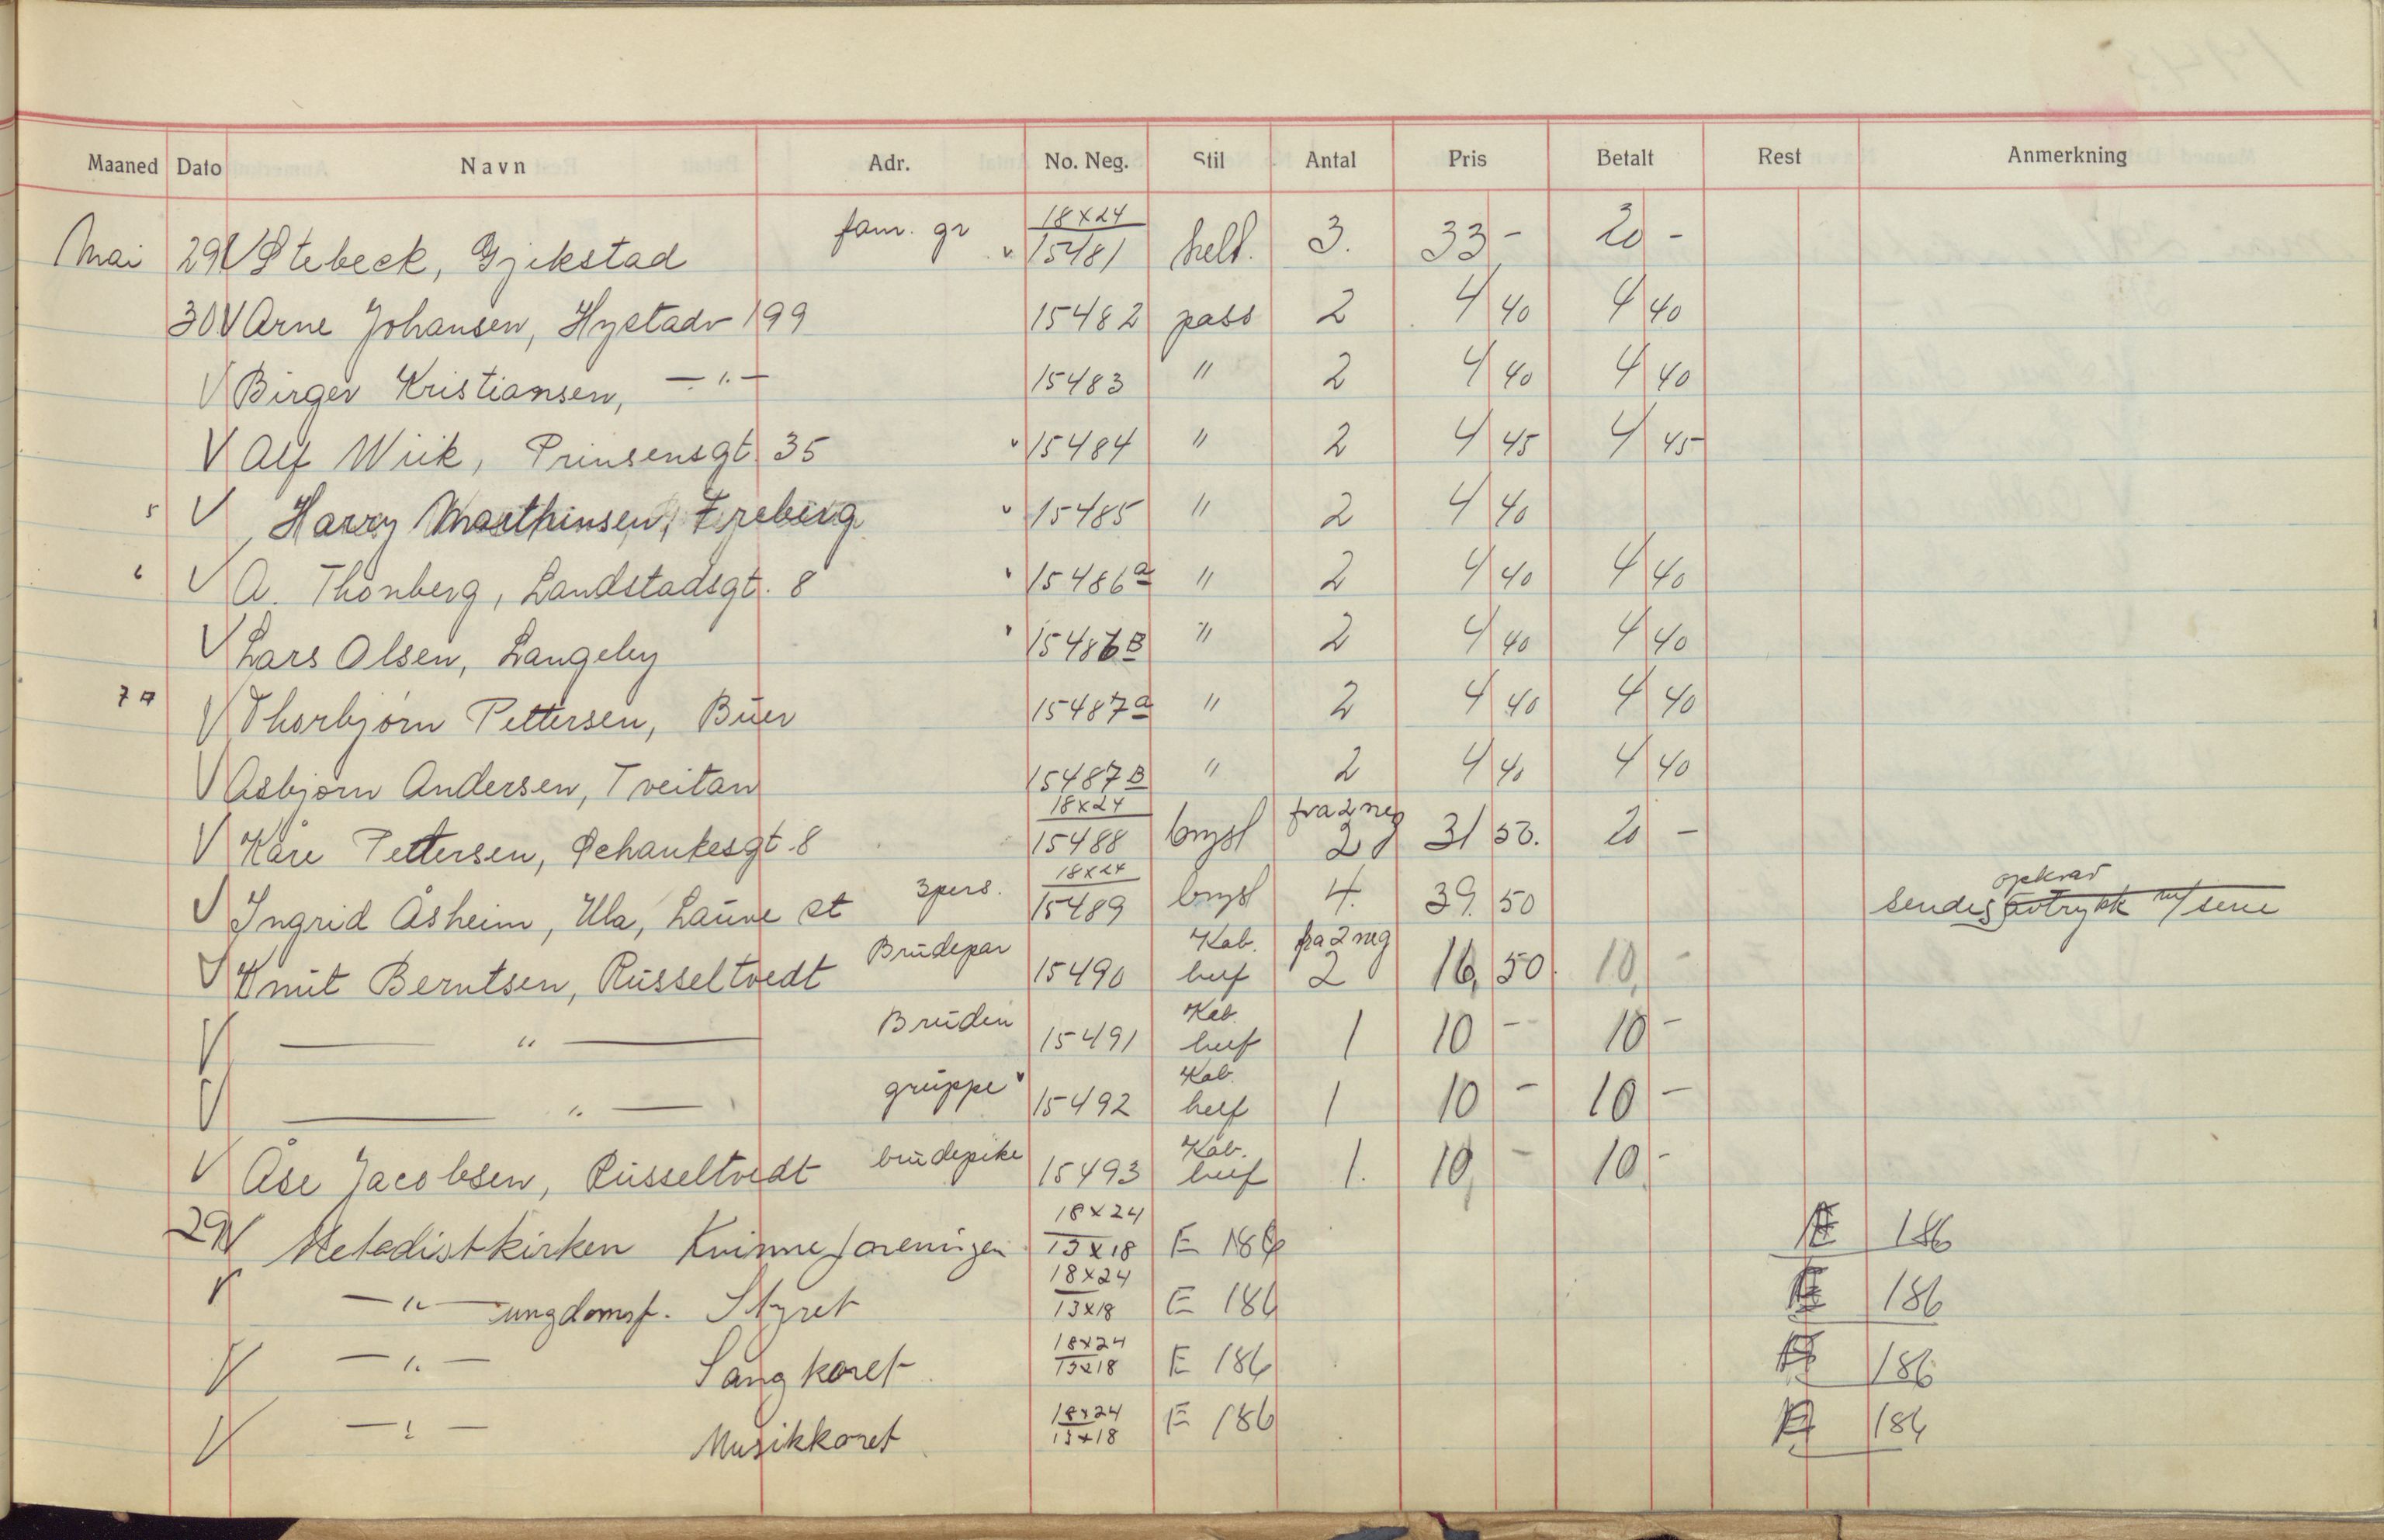 Maaned Dato Navn Adr. No. Neg. Stil Antal Pris Betalt Rest Anmerkning
Mai 29 V Stebeck, Gjekstad fam. gr 18x24 15481 helf. 3. 33 - 20 -
30 V Arne Johansen, Hystadv 199 15482 pass 2 4 40 4 40
V Birger Kristiansen, — " — 15483 " 2 4 40 4 40
V Alf Wiik, Prinsensgt 35 15484 " 2 4 45 4 45
5 V Harry Marthinsen, 15485 " 2 4 40
6 V A. Thonberg, Landstadsgt. 8 15486a " 2 4 40 4 40
V Lars Olsen, Langeby 15486B " 2 4 40 4 40
7 V Thorbjørn Pettersen, Buer 15487a " 2 4 40 4 40
V Asbjørn Andersen, Tveitan 15487B " 2 4 40 4 40
V Kåre Pettersen, Schankesgt. 8 18x24 15488 bryst fra 2 neg 2 31 50. 20 -
V Ingrid Åsheim, Ula, Lauve st 3 pers. 18x24 15489 bryst 4. 39. 50 sendes opkrav avtrykk m/ sene
V Knut Berntsen, Russeltvedt Brudepar 15490 Kab. helf fra 2 neg 2 16, 50 10, -
V — " — Bruden 15491 Kab. helf 1 10 - 10 -
V — " — gruppe 15492 Kab. helf 1 10 - 10 -
V Åse Jacobsen, Russeltvedt brudepike 15493 Kab. helf 1. 10, - 10 -
29 V Metodistkirken Kvinneforeningen 18x24 13x18 E 186 E 186
V — " — ungdomsf. Styret 18x24 13x18 E 186 E 186
V — " — Sangkoret 18x24 13x18 E 186 186
V — " — Musikkoret 18x24 13x18 E 186 186